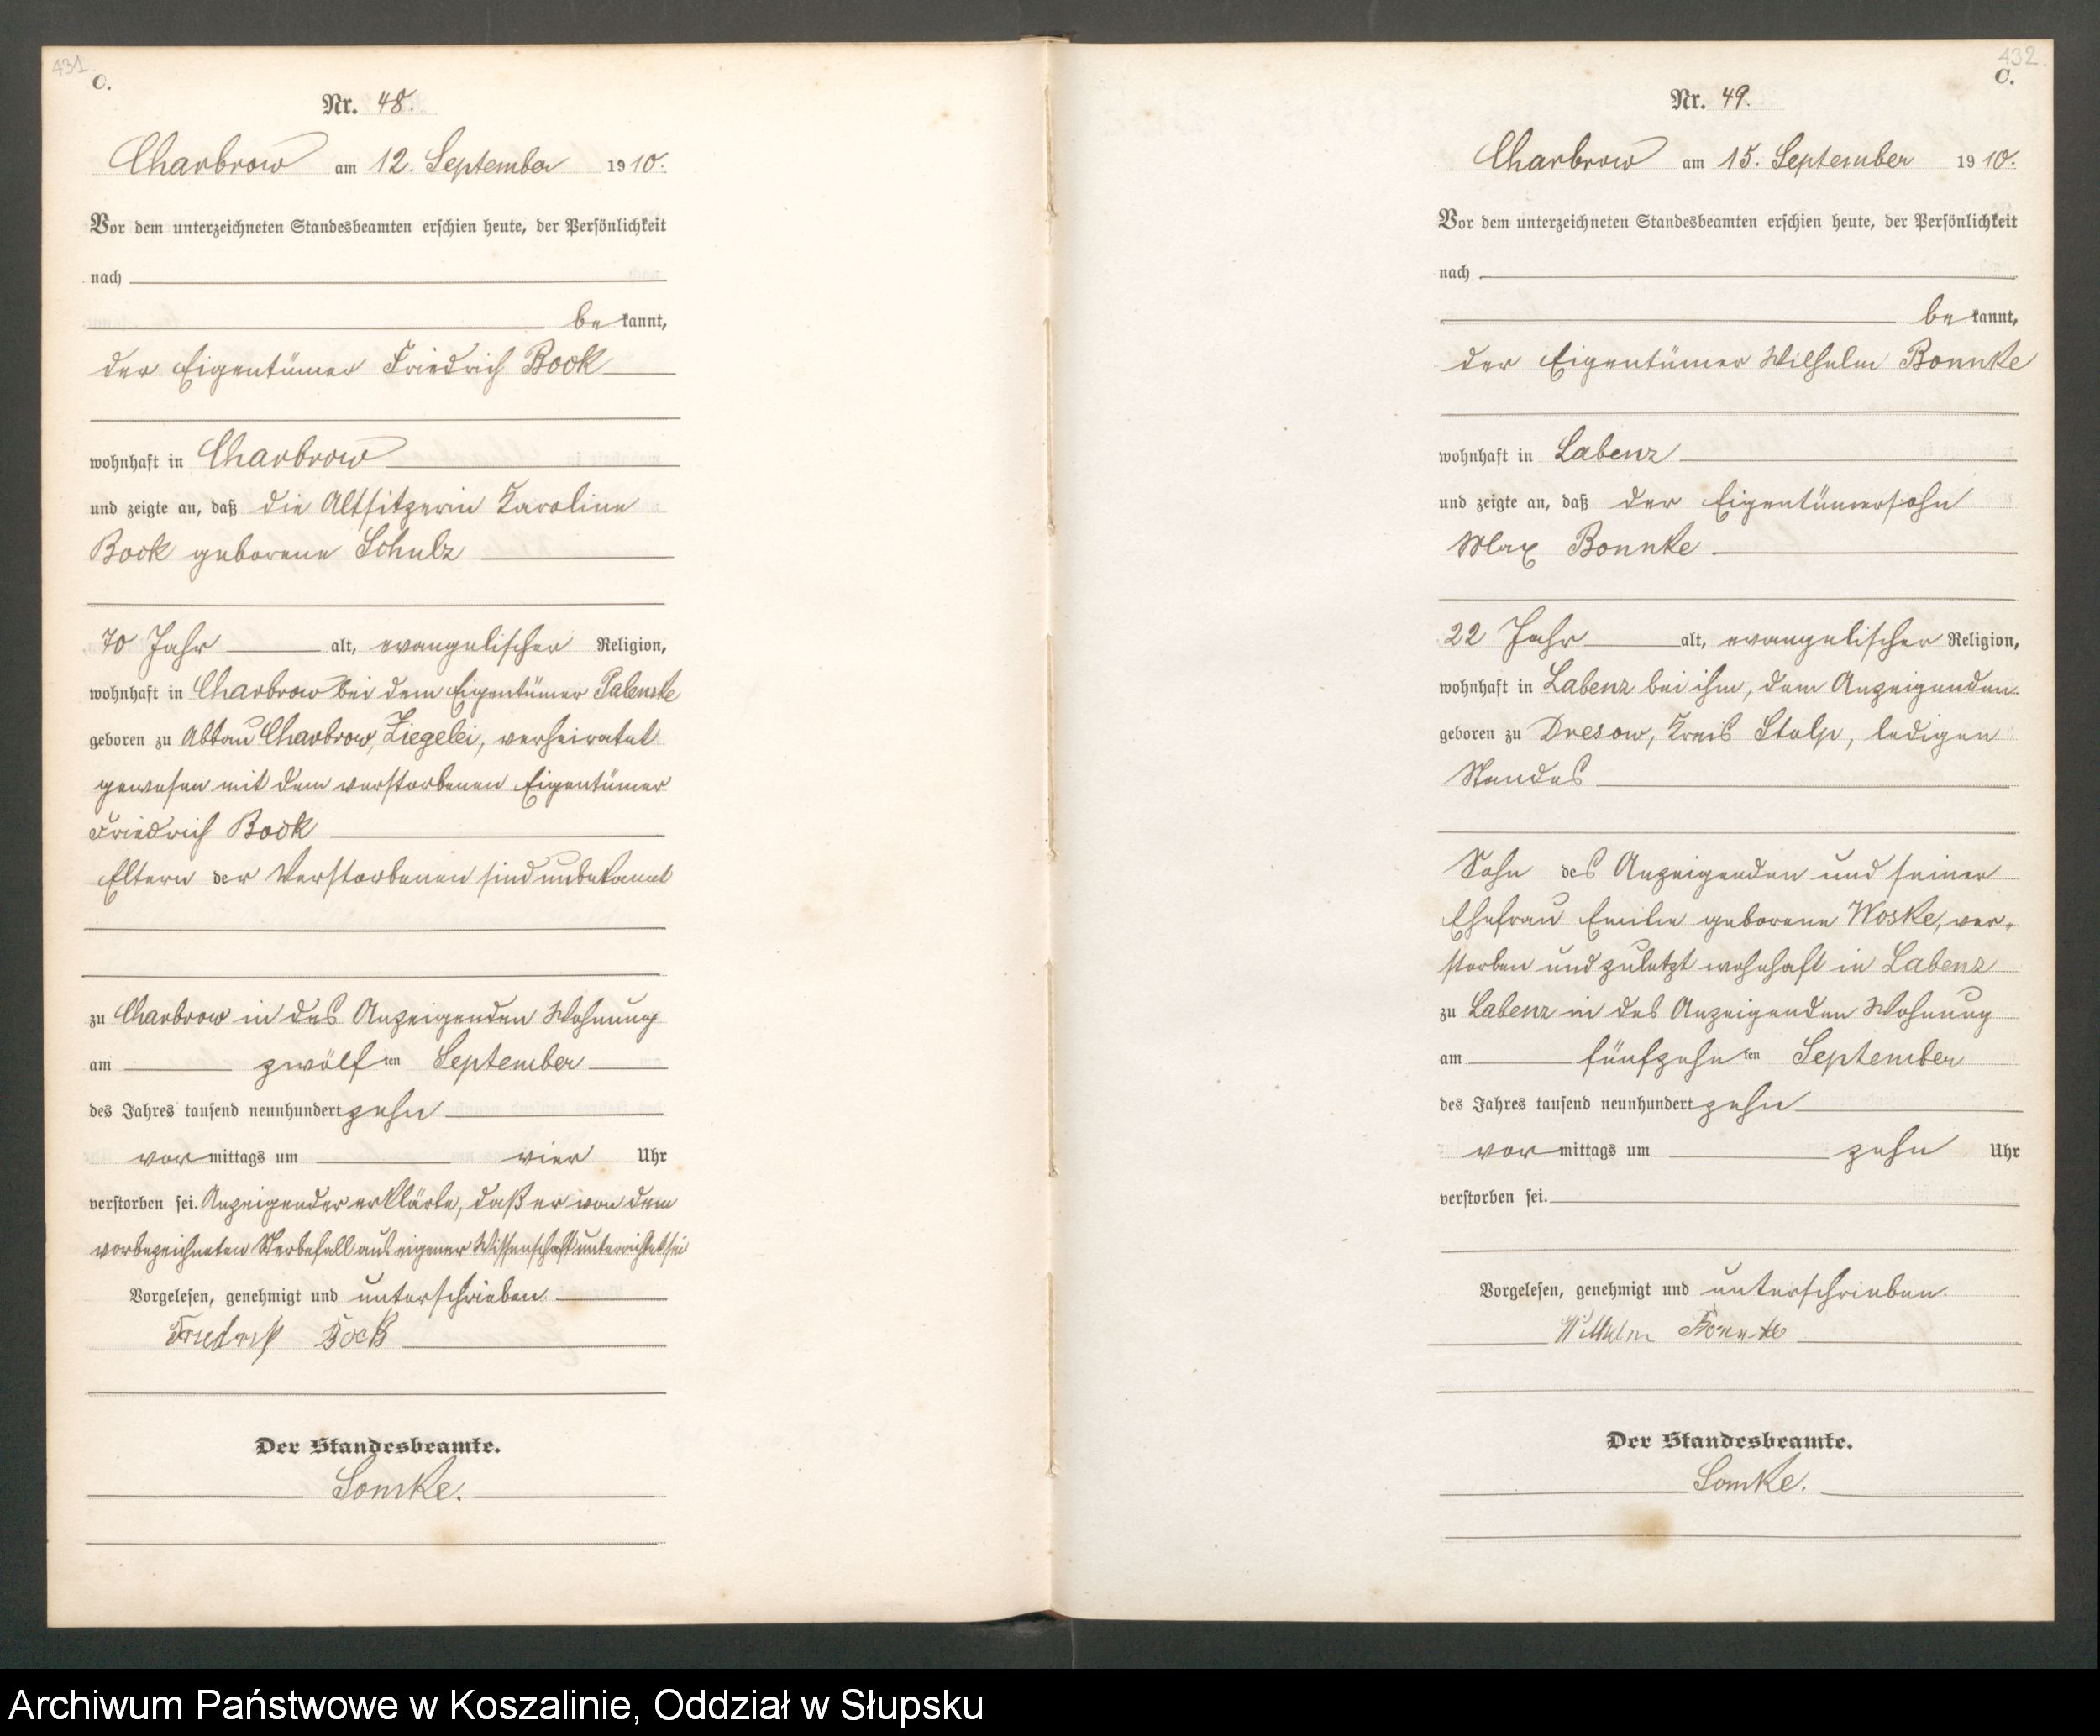 431.
C.
Nr. 48.
Charbrow am 12. September 1910.
Vor dem unterzeichneten Standesbeamten erschien heute, der Persönlichkeit
nach
be kannt,
der Eigentümer Friedrich Bock
wohnhaft in Charbrow
und zeigte an, daß die Altsitzerin Karoline
Bock geborene Schulz
70 Jahr alt, evangelischer Religion,
wohnhaft in Charbrow bei dem Eigentümer Palenske
geboren zu Abbau Charbrow, Ziegelei, verheiratet
gewesen mit dem verstorbenen Eigentümer
Friedrich Bock
Eltern der Verstorbenen sind unbekannt
zu Charbrow in des Anzeigenden Wohnung
am zwölften September
des Jahres tausend neunhundert zehn
vormittags um vier Uhr
verstorben sei. Anzeigender erklärte, daß er von dem
vorbezeichneten Sterbefall aus eigener Wissenschaft unterrichtet sei
Vorgelesen, genehmigt und unterschrieben.
Friedrich Bock
Der Standesbeamte.
Somke.
432.
C.
Nr. 49.
Charbrow am 15. September 1910.
Vor dem unterzeichneten Standesbeamten erschien heute, der Persönlichkeit
nach
be kannt,
der Eigentümer Wilhelm Bonnke
wohnhaft in Labenz
und zeigte an, daß der Eigentümersohn
Max Bonnke
22 Jahr alt, evangelischer Religion,
wohnhaft in Labenz bei ihm, dem Anzeigenden
geboren zu Dresow, Kreis Stolp, ledigen
Standes
Sohn des Anzeigenden und seiner
Ehefrau Emilie geborene Woske, ver-
storben und zuletzt wohnhaft in Labenz
zu Labenz in des Anzeigenden Wohnung
am fünfzehnten September
des Jahres tausend neunhundert zehn
vormittags um zehn Uhr
verstorben sei.
Vorgelesen, genehmigt und unterschrieben.
Wilhelm Bonnke
Der Standesbeamte.
Somke.
Archiwum Państwowe w Koszalinie, Oddział w Słupsku